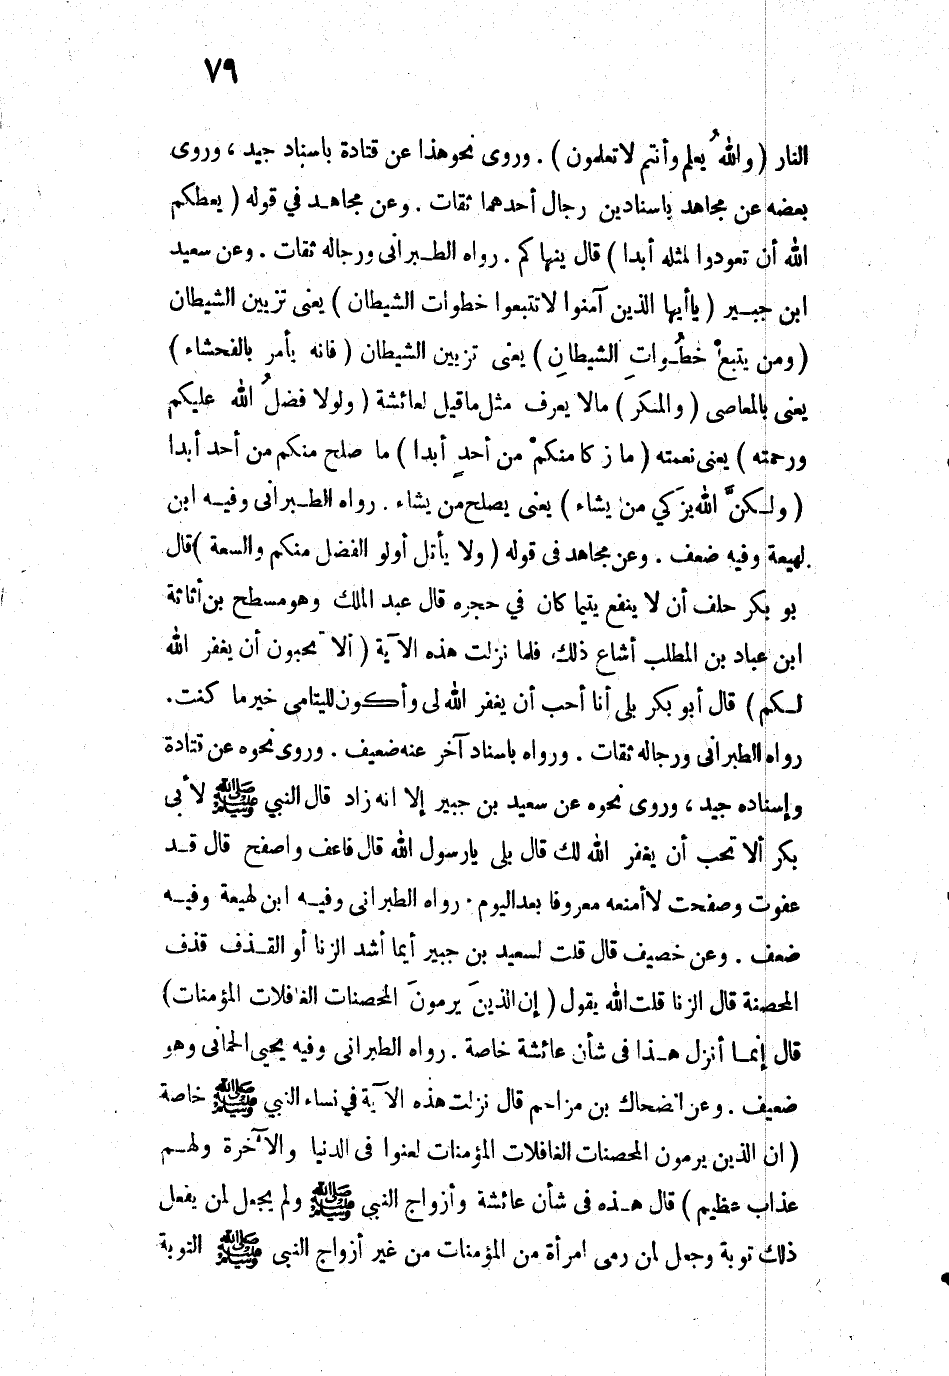 ٧٩
النار ( واللهُ يعلم وأنتم لا تعلمون ) . وروى نحو هذا عن قتادة باسناد جيد ، وروى
بعضه عن مجاهد باسنادين رجال أحدهما ثقات . وعن مجاهد في قوله ( يعظكم
الله أن تعودوا لمثله أبدا ) قال ينهاكم . رواه الطبرانى ورجاله ثقات . وعن سعيد
ابن جبير ( ياأيها الذين آمنوا لا تتبعوا خطوات الشيطان ) يعنى تزيين الشيطان
( ومن يتبعْ خطُوات الشيطانِ ) يعنى تزيين الشيطان ( فانه يأمر بالفحشاء )
يعنى بالمعاصى ( والمنكر ) مالا يعرف مثل ماقيل لعائشة ( ولولا فضلُ الله عليكم
ورحمته ) يعنى نعمته ( ما زكا منكمْ من أحدٍ أبدا ) ما صلح منكم من أحد أبدا
( ولكنَّ الله يزَكي من يشاء ) يعنى يصلح من يشاء . رواه الطبرانى وفيه ابن
لهيعة وفيه ضعف . وعن مجاهد فى قوله ( ولا يأتل أولو الفضل منكم والسعة ) قال
بو بكر حلف أن لا ينفع يتيما كان في حجره قال عبد الملك وهو مسطح بن أثاثة
ابن عباد بن المطلب أشاع ذلك، فلما نزلت هذه الآية ( ألا تحبون أن يغفر الله
لكم ) قال أبو بكر بلى أنا أحب أن يغفر الله لى وأكون لليتامى خير ما كنت .
رواه الطبرانى ورجاله ثقات . ورواه باسناد آخر عنه ضعيف . وروى نحوه عن قتادة
وإسناده جيد ، وروى نحوه عن سعيد بن جبير إلا انه زاد قال النبي ﷺ لأبى
بكر ألا تحب أن يغفر الله لك قال بلى يارسول الله قال فاعف واصفح قال قد
عفوت وصفحت لا أمنعه معروفا بعد اليوم . رواه الطبرانى وفيه ابن لهيعة وفيه
ضعف . وعن خصيف قال قلت لسعيد بن جبير أيما أشد الزنا أو القذف قذف
المحصنة قال الزنا قلت الله يقول ( إن الذينَ يرمونَ المحصنات الغافلات المؤمنات )
قال إنما أنزل هذا فى شأن عائشة خاصة . رواه الطبرانى وفيه يحيى الحمانى وهو
ضعيف . وعن الضحاك بن مزاحم قال نزلت هذه الآية في نساء النبي ﷺ خاصة
( ان الذين يرمون المحصنات الغافلات المؤمنات لعنوا فى الدنيا والآخرة ولهم
عذاب عظيم ) قال هذه فى شأن عائشة وأزواج النبى ﷺ ولم يجعل لمن يفعل
ذلك توبة وجعل لمن رمى امرأة من المؤمنات من غير أزواج النبى ﷺ التوبة